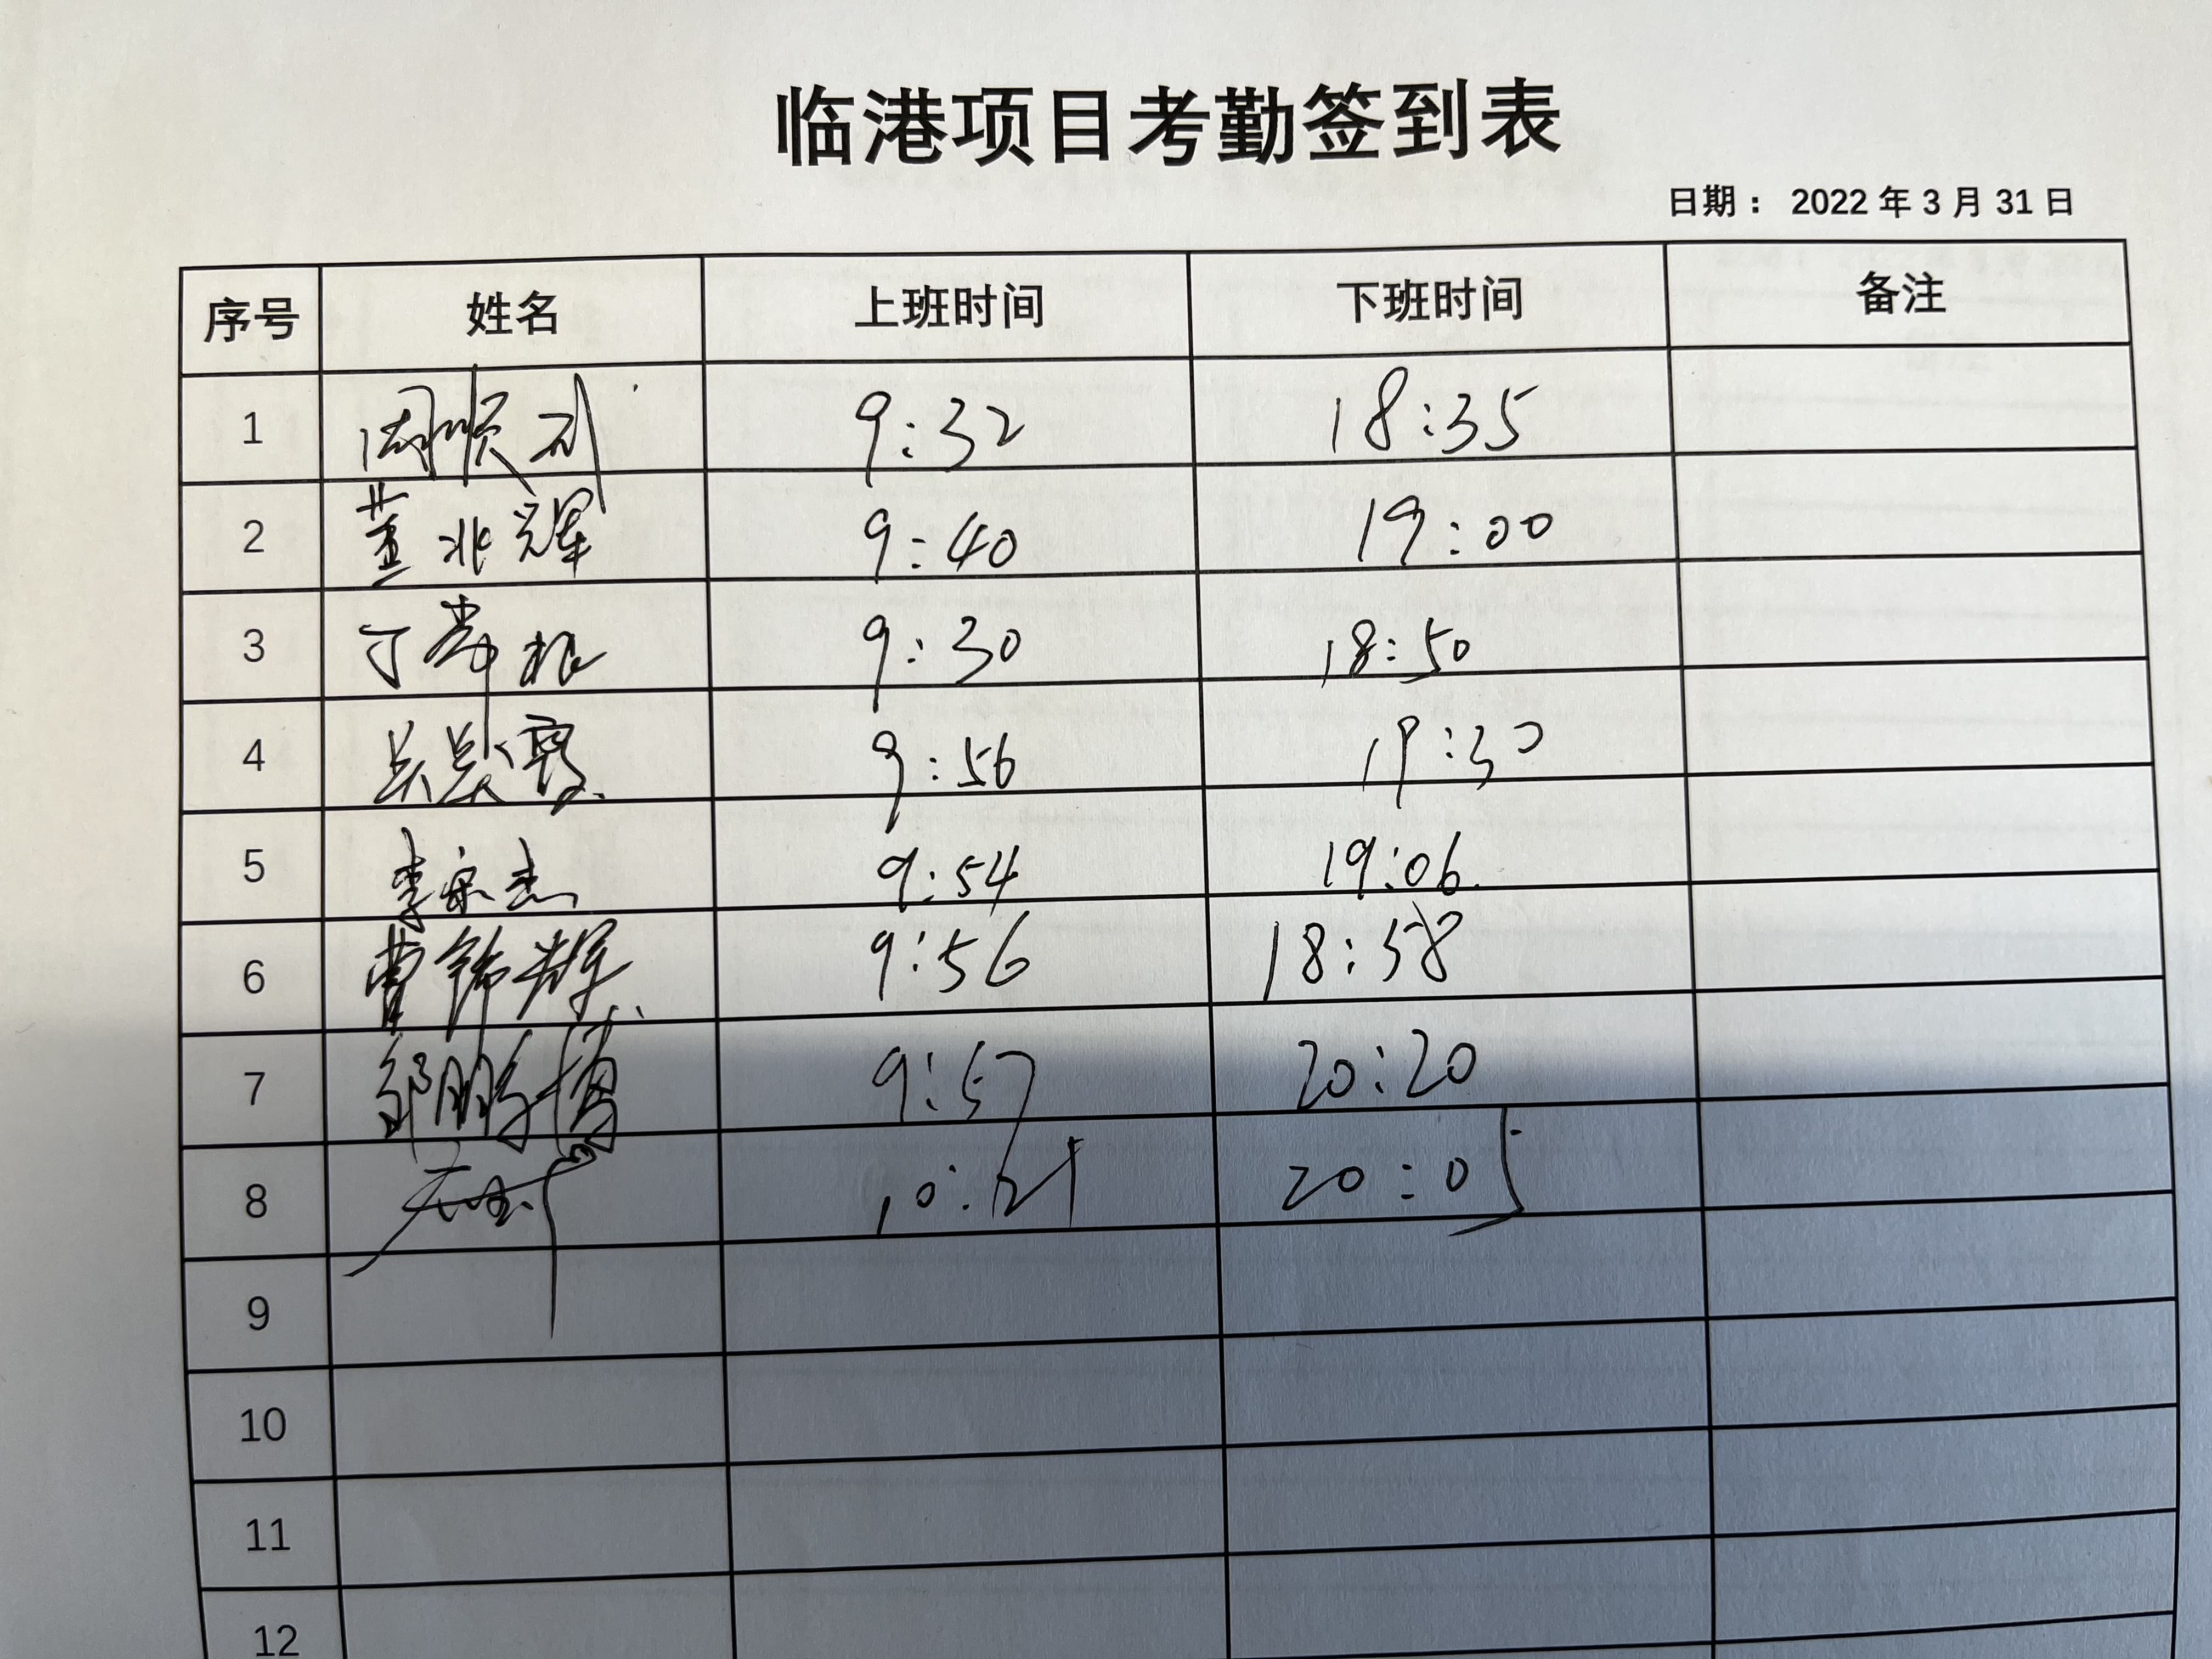 临港项目考勤签到表
日期： 2022 年 3 月 31 日
序号 姓名 上班时间 下班时间 备注
1 周顺利 9:32 18:35
2 董兆辉 9:40 19:00
3 丁 9:30 18:50
4 吴 9:56 19:30
5 李宗杰 9:54 19:06
6 曹锦辉 9:56 18:58
7 邹鹏博 9:57 20:20
8 10:21 20:05
9
10
11
12